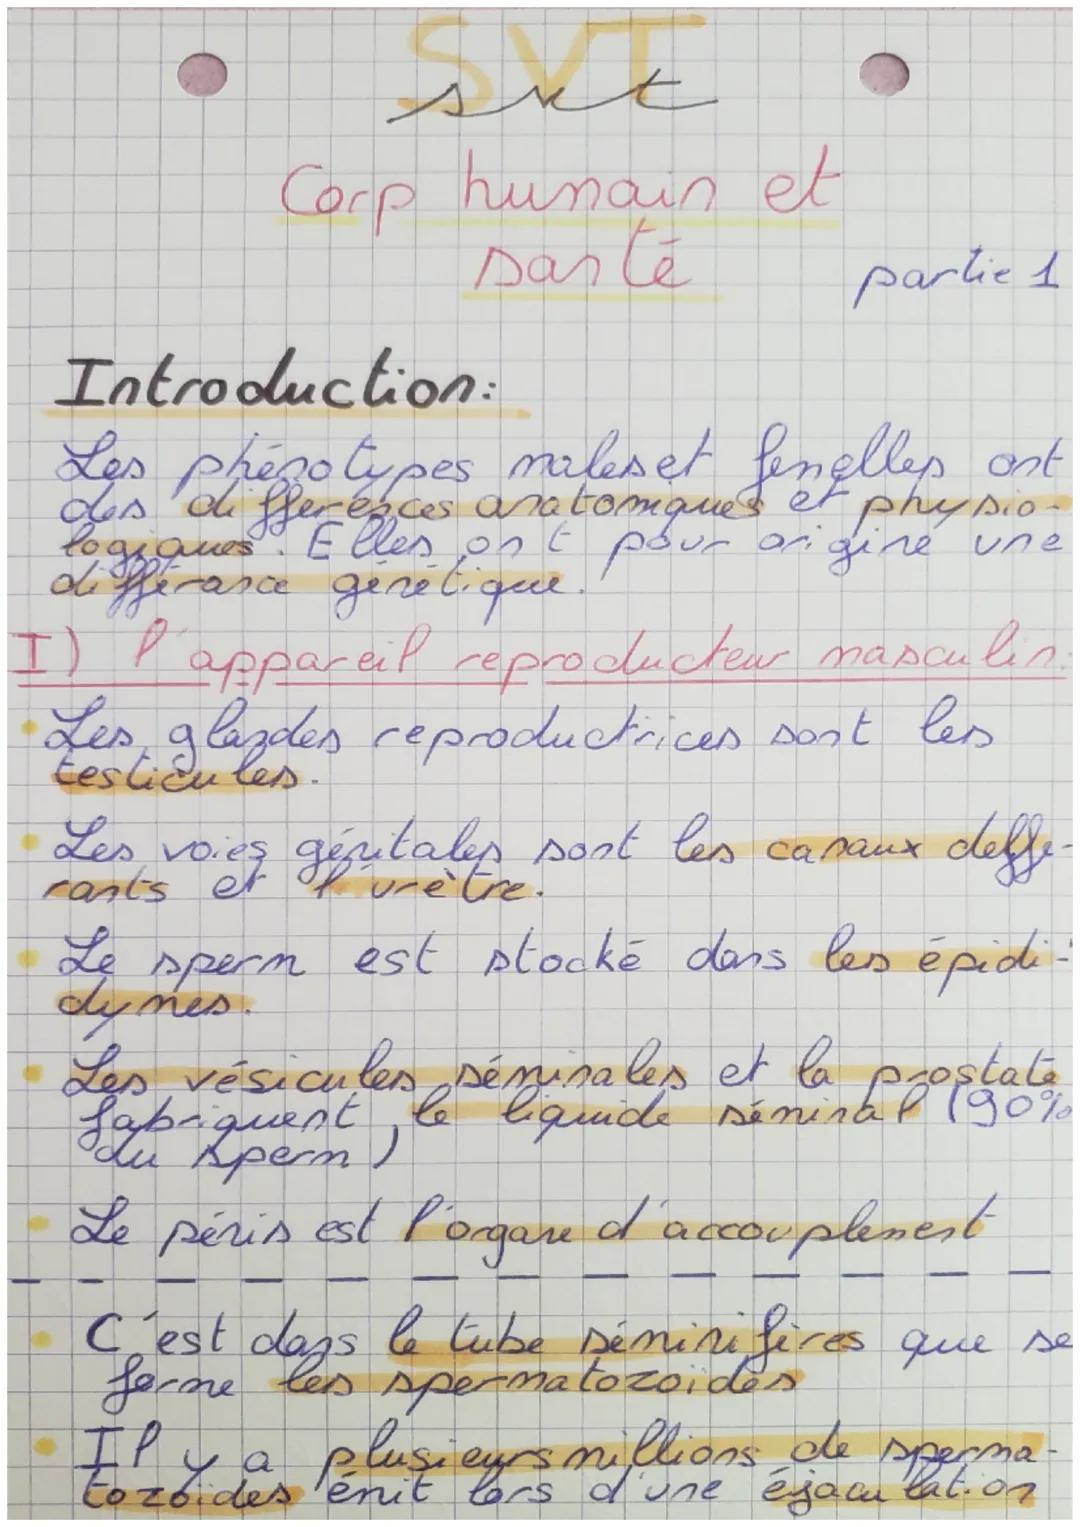 SVT
svt
Corp humain et
santé
partie 1
Introduction:
Les phénotypes males et femelles ont
des differences anatomiques et physio-
logiques. Elles ont pour origine une
différance génétique.
I) l'appareil reproducteur masculin.
Les glandes reproductrices sont les
testicules.
Les voies génitales sont les canaux deffe-
rants et l'urètre.
Le sperm est stocké dans les épidi-
dymes.
Les vésicules séminales et la prostate
fabriquent le liquide séminal (90%
du sperm)
Le pénis est l'organe d'accouplement
C'est dans le tube séminifires que se
forme les spermatozoides
Il y a plusieurs millions de sperma-
tozoides émit lors d'une éjaculation